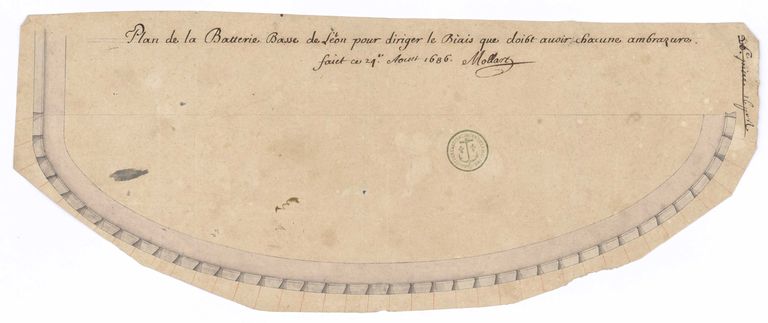 Plan de la Batterie Basse de Léon pour diriger le Biais que doibt auoir chacune ambrazure.
faict ce 24e. Aoust 1686. Mollart